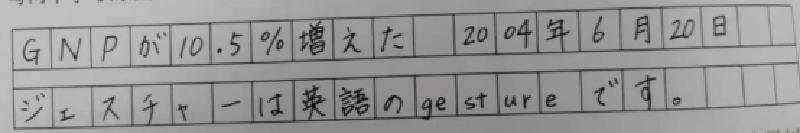 GNPが10.5%増えた 2004年6月20日
ジェスチャーは英語のgestureです。